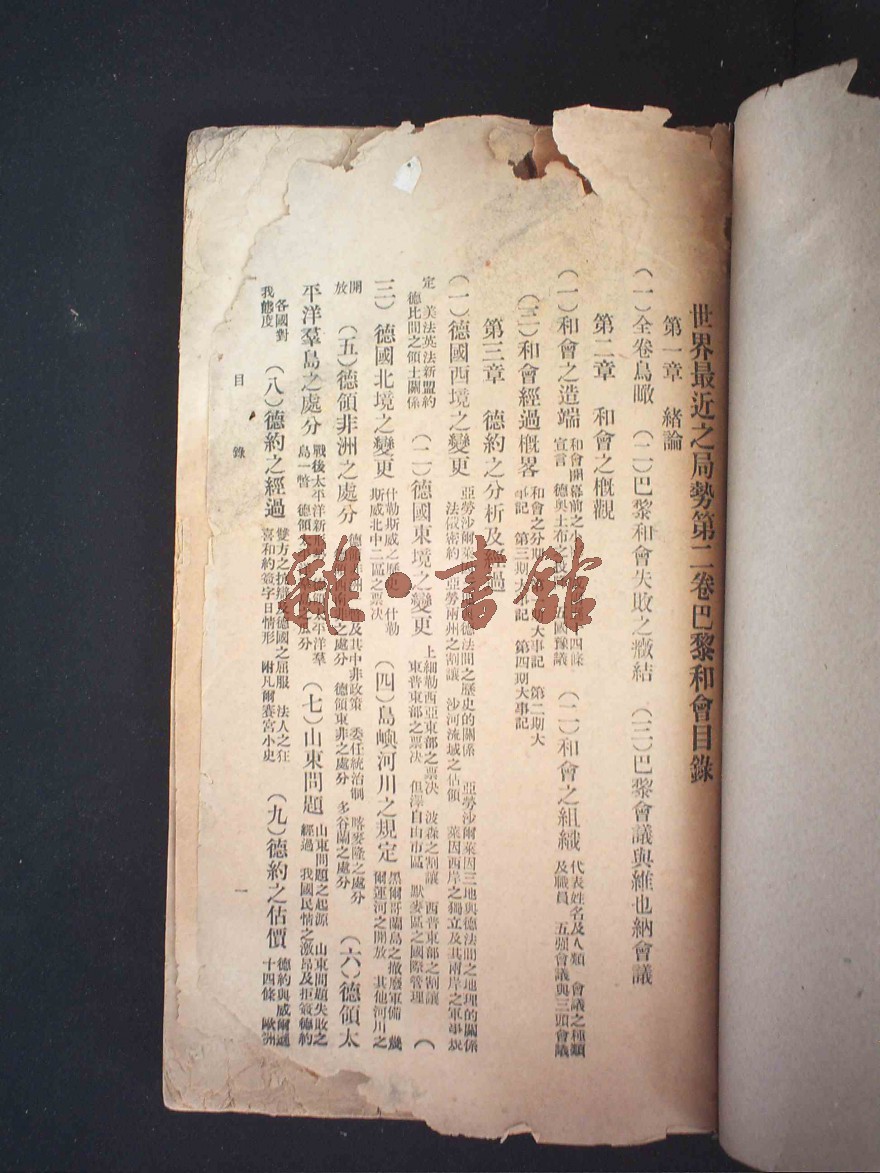 世界最近之局勢第二卷巴黎和會目錄
第一章　緒論
（一）全卷鳥瞰　（二）巴黎和會失敗之癥結　（三）巴黎會議與維也納會議
第二章　和會之概觀
（一）和會之造端　和會開幕前之　十四條
宣言　德奧土布之　五國豫議　（二）和會之組織　代表姓名及人類　會議之種類
及職員　五强會議與三頭會議
（三）和會經過概畧　和會之分期　大事記　第二期大
事記　第三期大事記　第四期大事記
第三章　德約之分析及經過
（一）德國西境之變更　亞勞沙爾萊　德法間之歷史的關係　亞勞沙爾萊因三地與德法間之地理的關係
法俄密約　亞勞兩州之割讓　沙河流域之佔領　萊因西岸之獨立及其兩岸之軍事規
定　美法英法新盟約
德比間之領土關係　（二）德國東境之變更　上細勒西亞東部之票決　波森之割讓　西普東部之割讓
東普東部之票決　但澤自由市區　默麥區之國際管理　（
三）德國北境之變更　什勒斯威之歷史　什勒
斯威北中二區之票決　（四）島嶼河川之規定　黑爾哥蘭島之撤廢軍備　幾
爾運河之開放　其他河川之
開
放　（五）德領非洲之處分　德　及其中非政策　委任統治制　喀麥隆之處分
之處分　德領東非之處分　多谷蘭之處分　（六）德領太
平洋羣島之處分　戰後太平洋新形　太平洋羣
島一瞥　德領　瓜分　（七）山東問題　山東問題之起源　山東問題失敗之
經過　我國民情之激昂及拒簽德約
各國對
我態度　（八）德約之經過　雙方之抗辯及德國之屈服　法人之狂
喜和約簽字日情形　附凡爾賽宮小史　（九）德約之估價　德約與威爾遜
十四條　歐洲
目錄　一
雜·書館